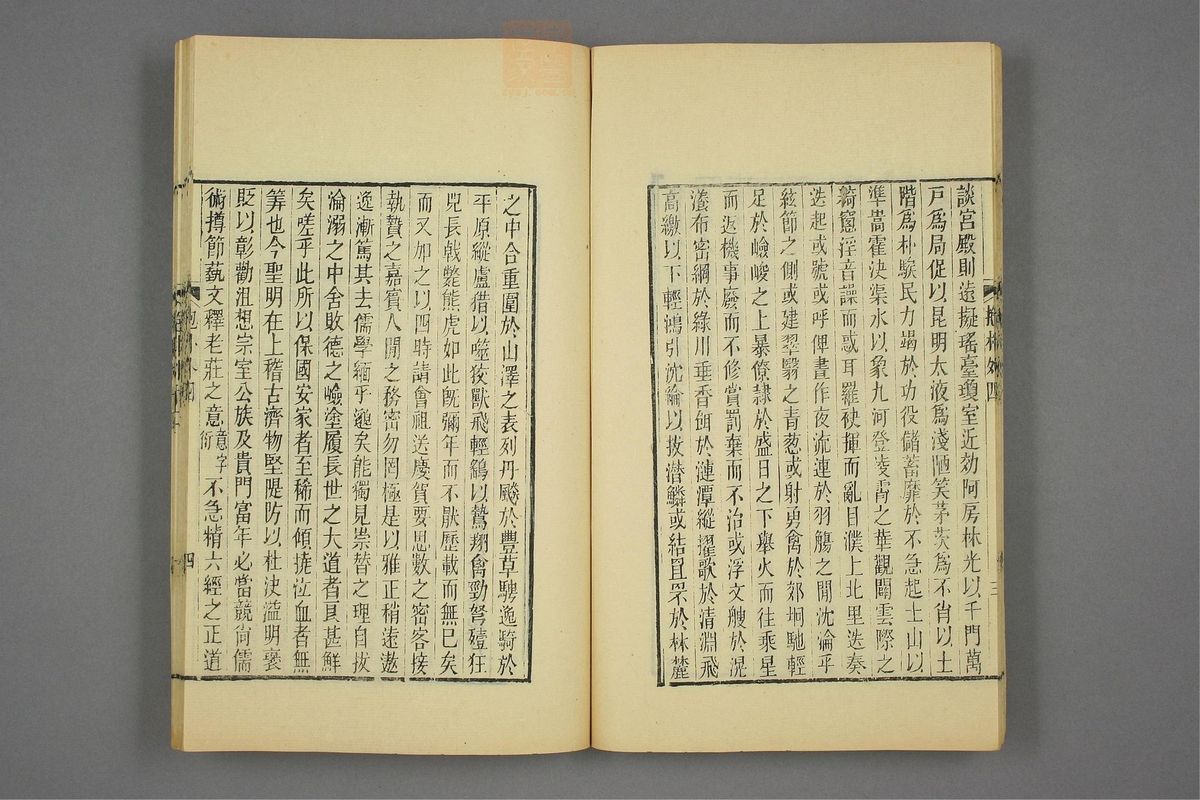 談宮殿則遠擬瑤臺瓊室近効阿房林光以千門萬
戸爲局促以昆明太液爲淺陋笑茅茨爲不肖以土
階爲朴騃民力竭於功役儲蓄靡於不急起土山以
準嵩霍決渠水以象九河登凌霄之華觀闢雲際之
綺窻淫音譟而惑耳羅袂揮而亂目濮上北里迭奏
迭起或號或呼俾晝作夜流連於羽觴之閒沈淪乎
絃節之側或建翠翳之青葱或射勇禽於郊坰馳輕
足於嶮峻之上暴僚隷於盛日之下舉火而往乘星
而返機事廢而不修賞罰棄而不治或浮文艘於滉
瀁布密網於綠川垂香餌於漣潭縱擢歌於清淵飛
高繳以下輕鴻引沈綸以拔潛鱗或結罝罘於林麓
之中合重圍於山澤之表列丹飈於豐草騁逸騎於
平原縱盧猎以噬狡獸飛輕鷂以鷙翔禽勁弩殪狂
兕長戟斃熊虎如此旣彌年而不猒歷載而無已矣
而又加之以四時請會祖送慶賀要思數之密客接
執贄之嘉賓人閒之務密勿罔極是以雅正稍遠遨
逸漸篤其去儒學緬乎邈矣能獨見崇替之理自拔
淪溺之中舍敗德之嶮塗履長世之大道者良甚鮮
矣嗟乎此所以保國安家者至稀而傾撓泣血者無
筭也今聖明在上稽古濟物堅隄防以杜決溢明襃
貶以彰勸沮想宗室公族及貴門富年必當競尙儒
術撙節藝文釋老莊之意意字衍不急精六經之正道
四